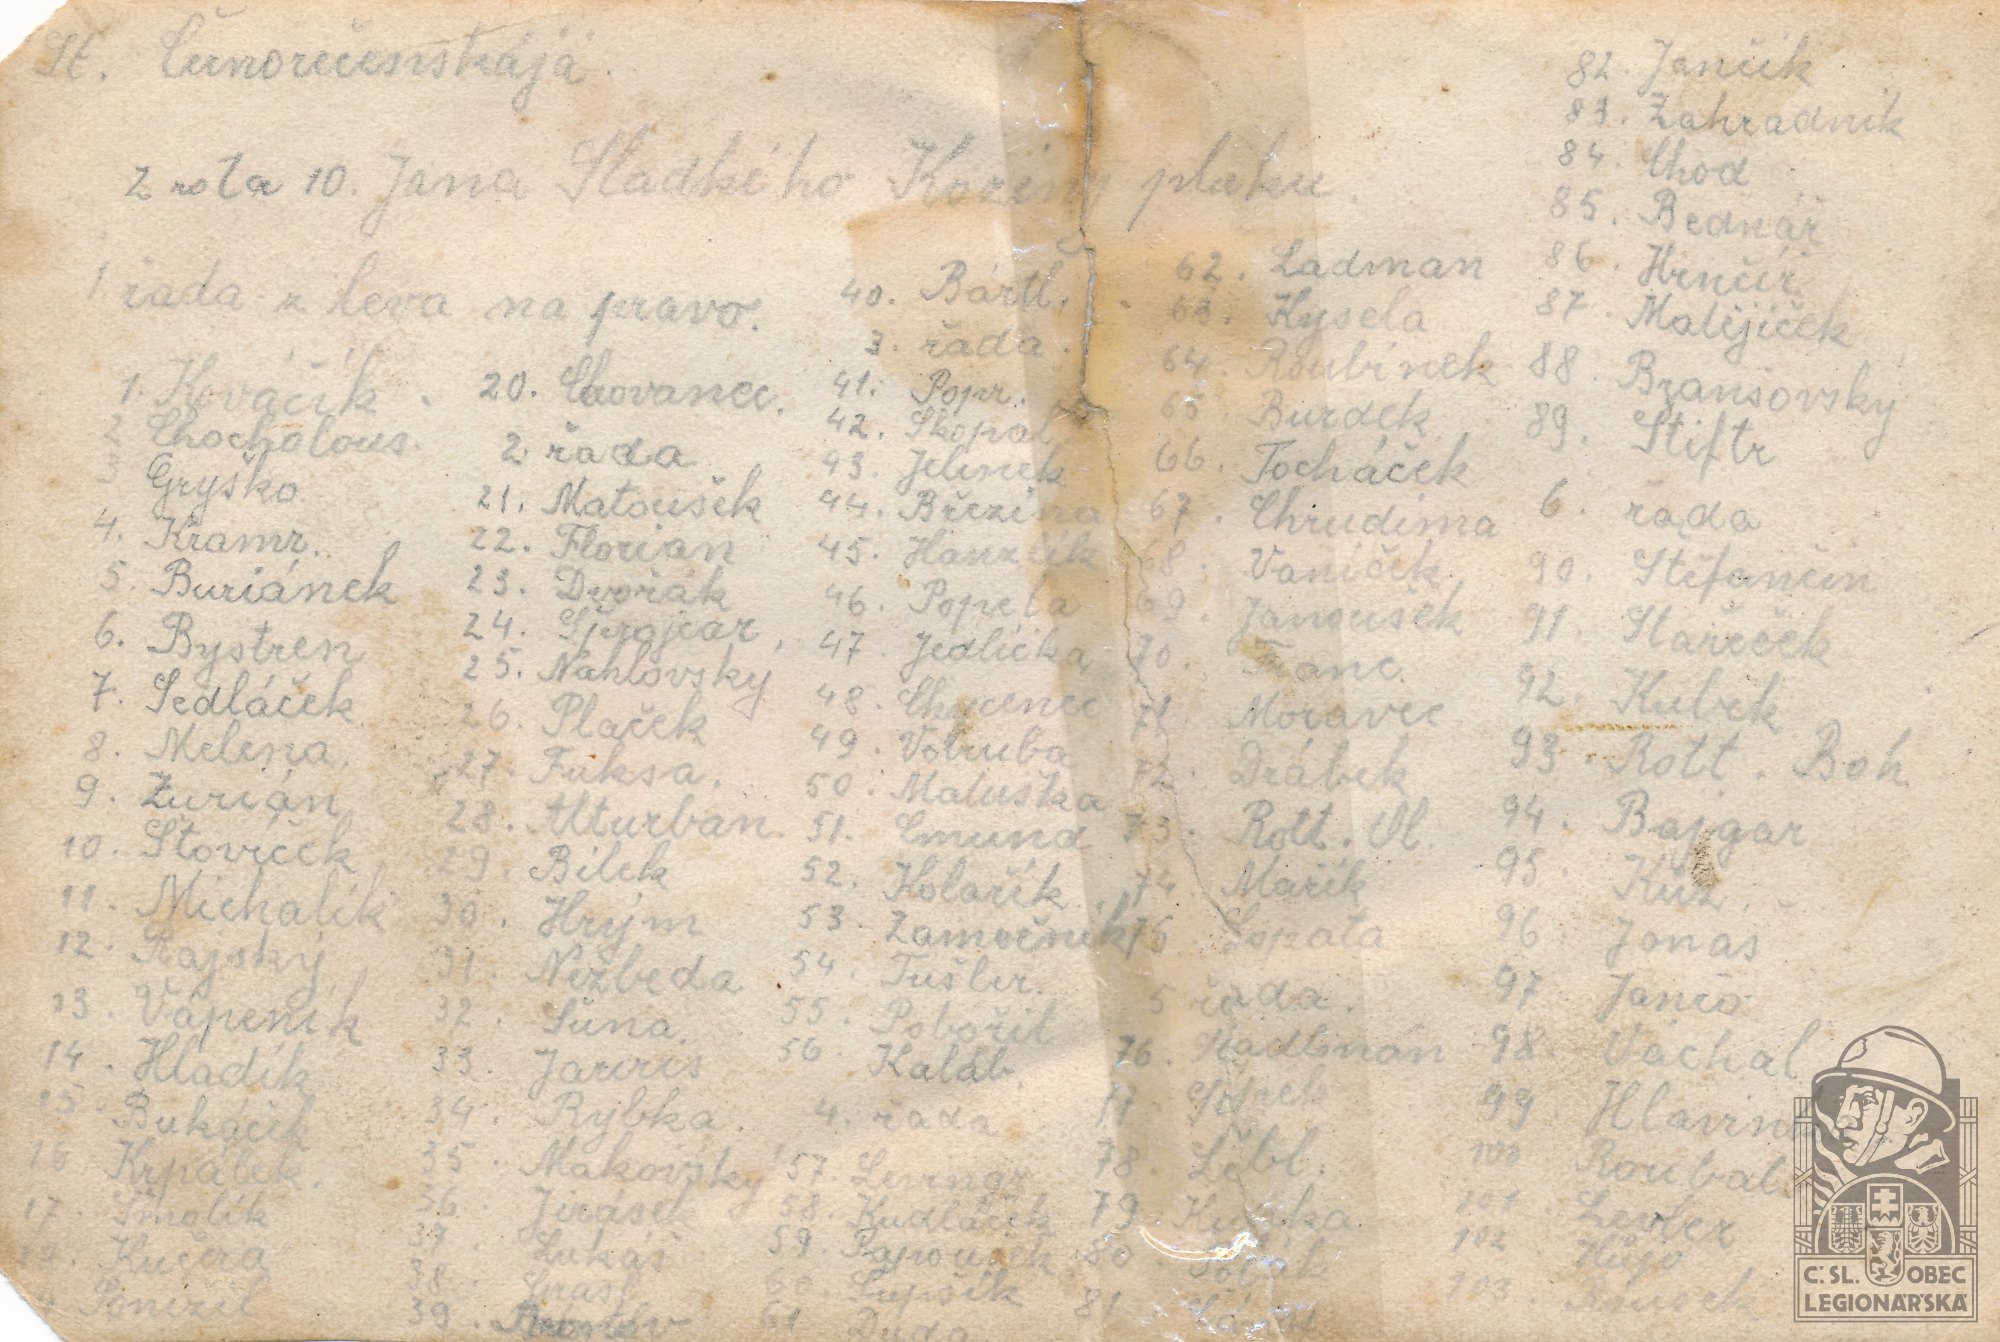 St. Čunoručenskaja.
2 rota 10. Jana Sladkého Koziny pluku.
1. řada z leva na pravo.
1. Kováčik.
2 Chocholous.
3 Gryško
4. Kramr.
5. Buriánek
6. Bystren
7. Sedláček
8. Melena.
9. Žurián
10. Štovíček
11. Michalík
12. Rajský
13. Vápeník
14. Hladík
15. Bukáček
16. Krpálek.
17. Smolík
18. Kučera
20. Chovanec.
2 řada
21. Matoušek
22. Florian
23. Dvořák
24. Šprajcar,
25. Nahlovsky
26. Plaček
27. Fuksa.
28. Alturban
29. Bílek
30. Hrým
31. Nezbeda
32. Šuna.
33. Jarris
34. Rybka.
35. Makovsky
36 Jirásek
37. Lukáš
38.
39.
40. Bartl.
3. řada.
41. Popr.
42. Skopal
43. Jelínek
44. Březina
45. Hanzlík
46. Popela
47. Jedlička
48.
49. Votruba
50. Matuška
51. Emund
52. Kolařík
53. Zámečník
54. Tušler.
55. Pobořil
56. Kaláb.
4. řada
57.
58. Kudláček
59. Papoušek
60. Lupšík
61 Duda
62. Ladman
63. Kysela
64. Roubínek
65. Burdek
66. Tocháček
67. Chrudima
68. Vaníček
69. Janoušek
70. Franc.
71. Moravec
72. Drábek
73. Rott. Vl.
74. Mařík
75 Lopata
5 řada.
76. Kadlman
77.
78 Lébl.
79
80
81.
82. Jančik
83. Zahradnik
84. Chod
85. Bednář
86. Hrnčíř
87. Matějíček
88. Branšovsky
89. Štiftr
6. řada
90. Štefančin
91. Stareček
92. Kubek
93. Rott. Boh.
94. Bajgar
95. Kuz.
96. Jonas
97 Janič
98. Váchal
99.
100 Roubal
101.
102.
103.
Č.SL. OBEC
LEGIONÁŘSKÁ